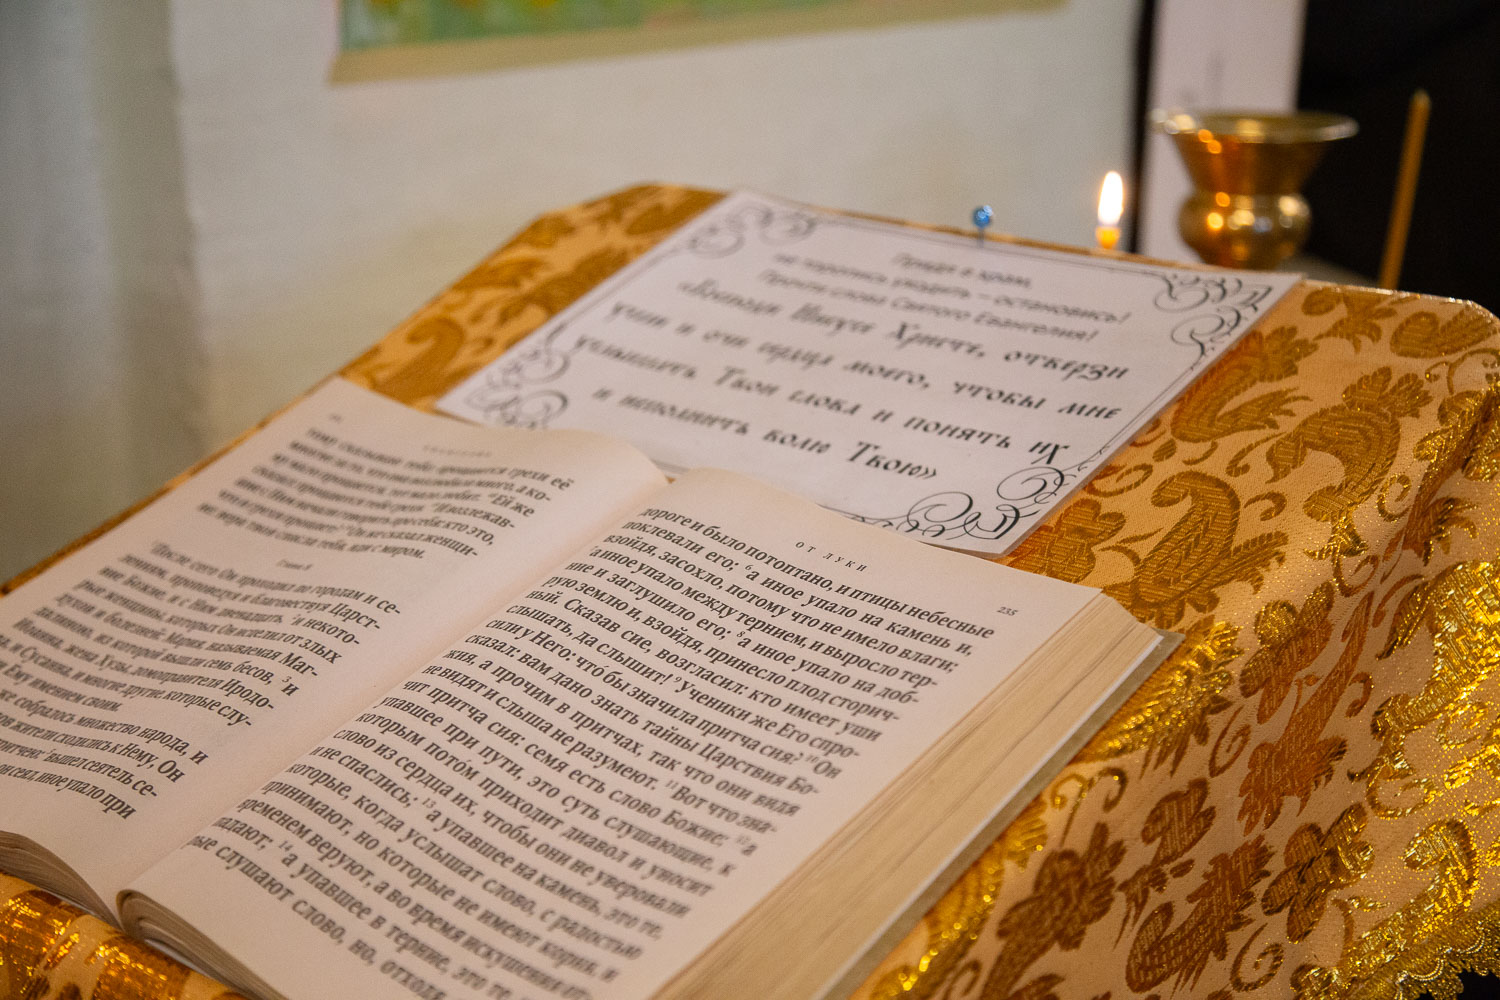 Придя в храм,
не торопись уходить – остановись!
Прочти слова Святого Евангелия!
«Господи Иисусе Христе, отверзи
уши и очи сердца моего, чтобы мне
услышать Твои слова и понять их
и исполнить волю Твою»
тому сказываю тебе: прощаются грехи её
многие за то, что она возлюбила много, а ко-
му мало прощается, тот мало любит. Ей же
сказал: прощаются тебе грехи. И возлежав-
шие с Ним начали говорить про себя: кто это,
что и грехи прощает? Он же сказал женщи-
не: вера твоя спасла тебя, иди с миром.
Глава 8
После сего Он проходил по городам и се-
лениям, проповедуя и благовествуя Царст-
вие Божие, и с Ним двенадцать, и некото-
рые женщины, которых Он исцелил от злых
духов и болезней: Мария, называемая Маг-
далиною, из которой вышли семь бесов, ³ и
Иоанна, жена Хузы, домоправителя Иродо-
и Сусанна, и многие другие, которые слу-
Ему имением своим.
же собралось множество народа, и
жители сходились к Нему, Он
притчею: вышел сеятель се-
он сеял, иное упало при
ОТ ЛУКИ
235
дороге и было потоптано, и птицы небесные
поклевали его; ⁶а иное упало на камень и,
взойдя, засохло, потому что не имело влаги;
⁷а иное упало между тернием, и выросло тер-
ние и заглушило его; ⁸а иное упало на доб-
рую землю и, взойдя, принесло плод сторич-
ный. Сказав сие, возгласил: кто имеет уши
слышать, да слышит! ⁹Ученики же Его спро-
сили у Него: что́ бы значила притча сия? ¹⁰Он
сказал: вам дано знать тайны Царствия Бо-
жия, а прочим в притчах, так что они видя
не видят и слыша не разумеют. ¹¹Вот что зна-
чит притча сия: семя есть слово Божие; ¹²а
упавшее при пути, это суть слушающие, к
которым пото́м приходит диавол и уносит
слово из сердца их, чтобы они не уверовали
и не спаслись; ¹³а упавшее на камень, это те,
которые, когда услышат слово, с радостью
принимают, но которые не имеют корня, и
временем веруют, а во время искушения от-
падают; ¹⁴а упавшее в терние, это те,
рые слушают слово, но, отходя